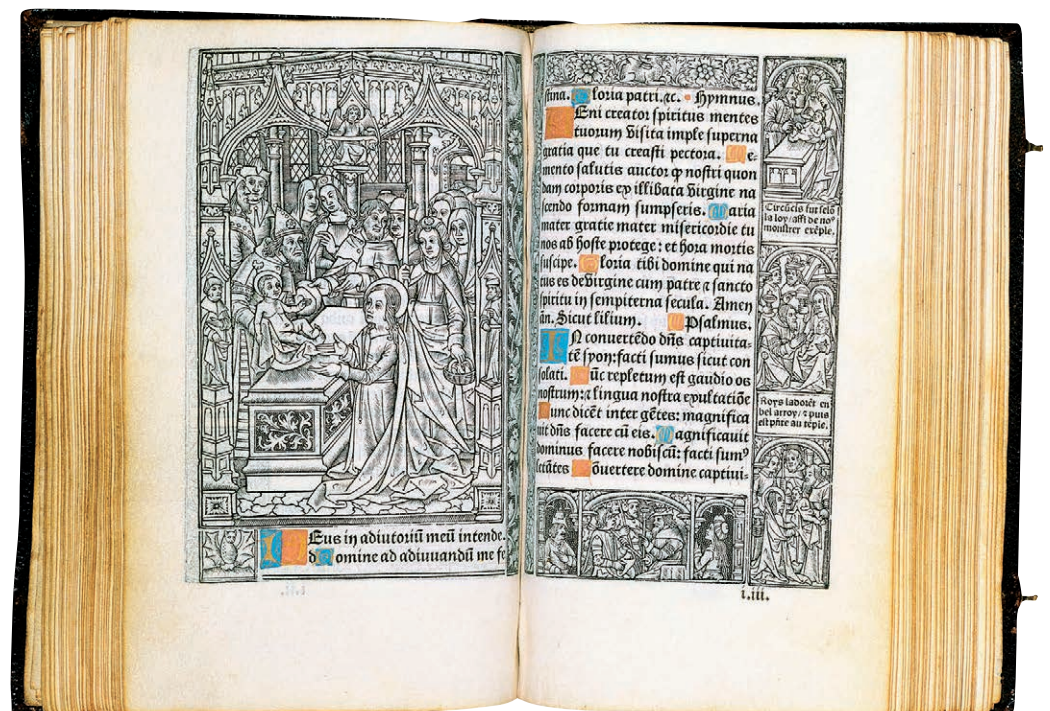 Eus in adiutoriū meū intende.
domine ad adiuuandū me fe
ſtina. Gloria patri.⁊c. Hymnus.
VEni creator ſpiritus mentes
tuorum viſita imple ſuperna
gratia que tu creaſti pectora. Me-
mento ſalutis auctor ꝙ noſtri quon
dam corporis ex illibata virgine na
ſcendo formam ſumpſeris. Maria
mater gratie mater miſericordie tu
nos ab hoſte protege: et hora mortis
ſuſcipe. Gloria tibi domine qui na
tus es de virgine cum patre ⁊ ſancto
ſpiritu in ſempiterna ſecula. Amen
añ. Sicut lilium. Pſalmus.
IN conuertēdo dn̄s captiuita-
tē ſyon: facti ſumus ſicut con
ſolati. Tūc repletum eſt gaudio os
noſtrum: ⁊ lingua noſtra exultatiōe
Tunc dicēt inter gētes: magnifica
uit dn̄s facere cū eis. Magnificauit
dominus facere nobiſcū: facti ſumꝰ
letātes Cōuertere domine captiui-
Circūcis fut ſelō
la loy / affi de noꝰ
monſtrer exēple.
Roys ladorēt en
bel arroy / ⁊ puis
eſt
au tēple.
i.iii.